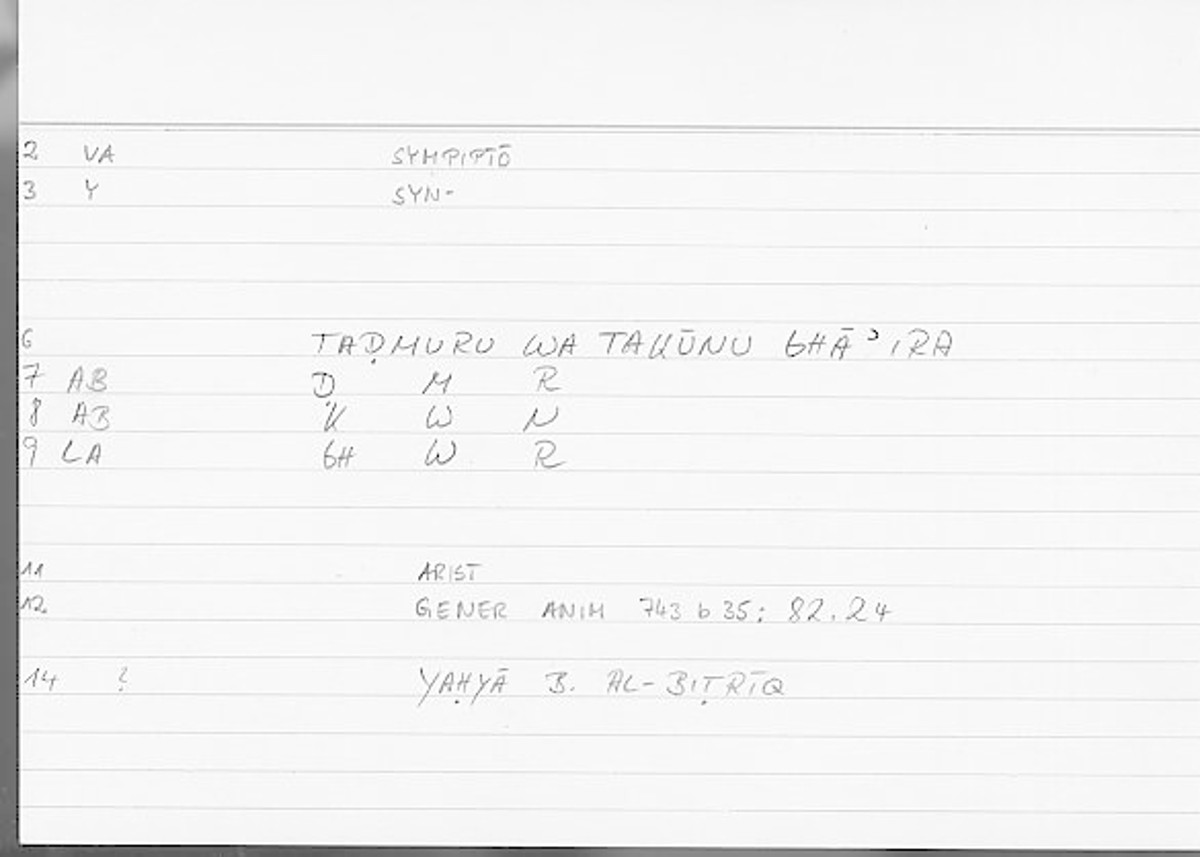 2 VA SYMPIPTŌ
3 Y SYN-
6 TAḌMURU WA TAKŪNU GHĀʾIRA
7 AB Ḍ M R
8 AB K W N
9 LA GH W R
11 ARIST
12 GENER ANIM 743 b 35: 82.24
14 ? YAḤYĀ B. AL-BIṬRĪQ